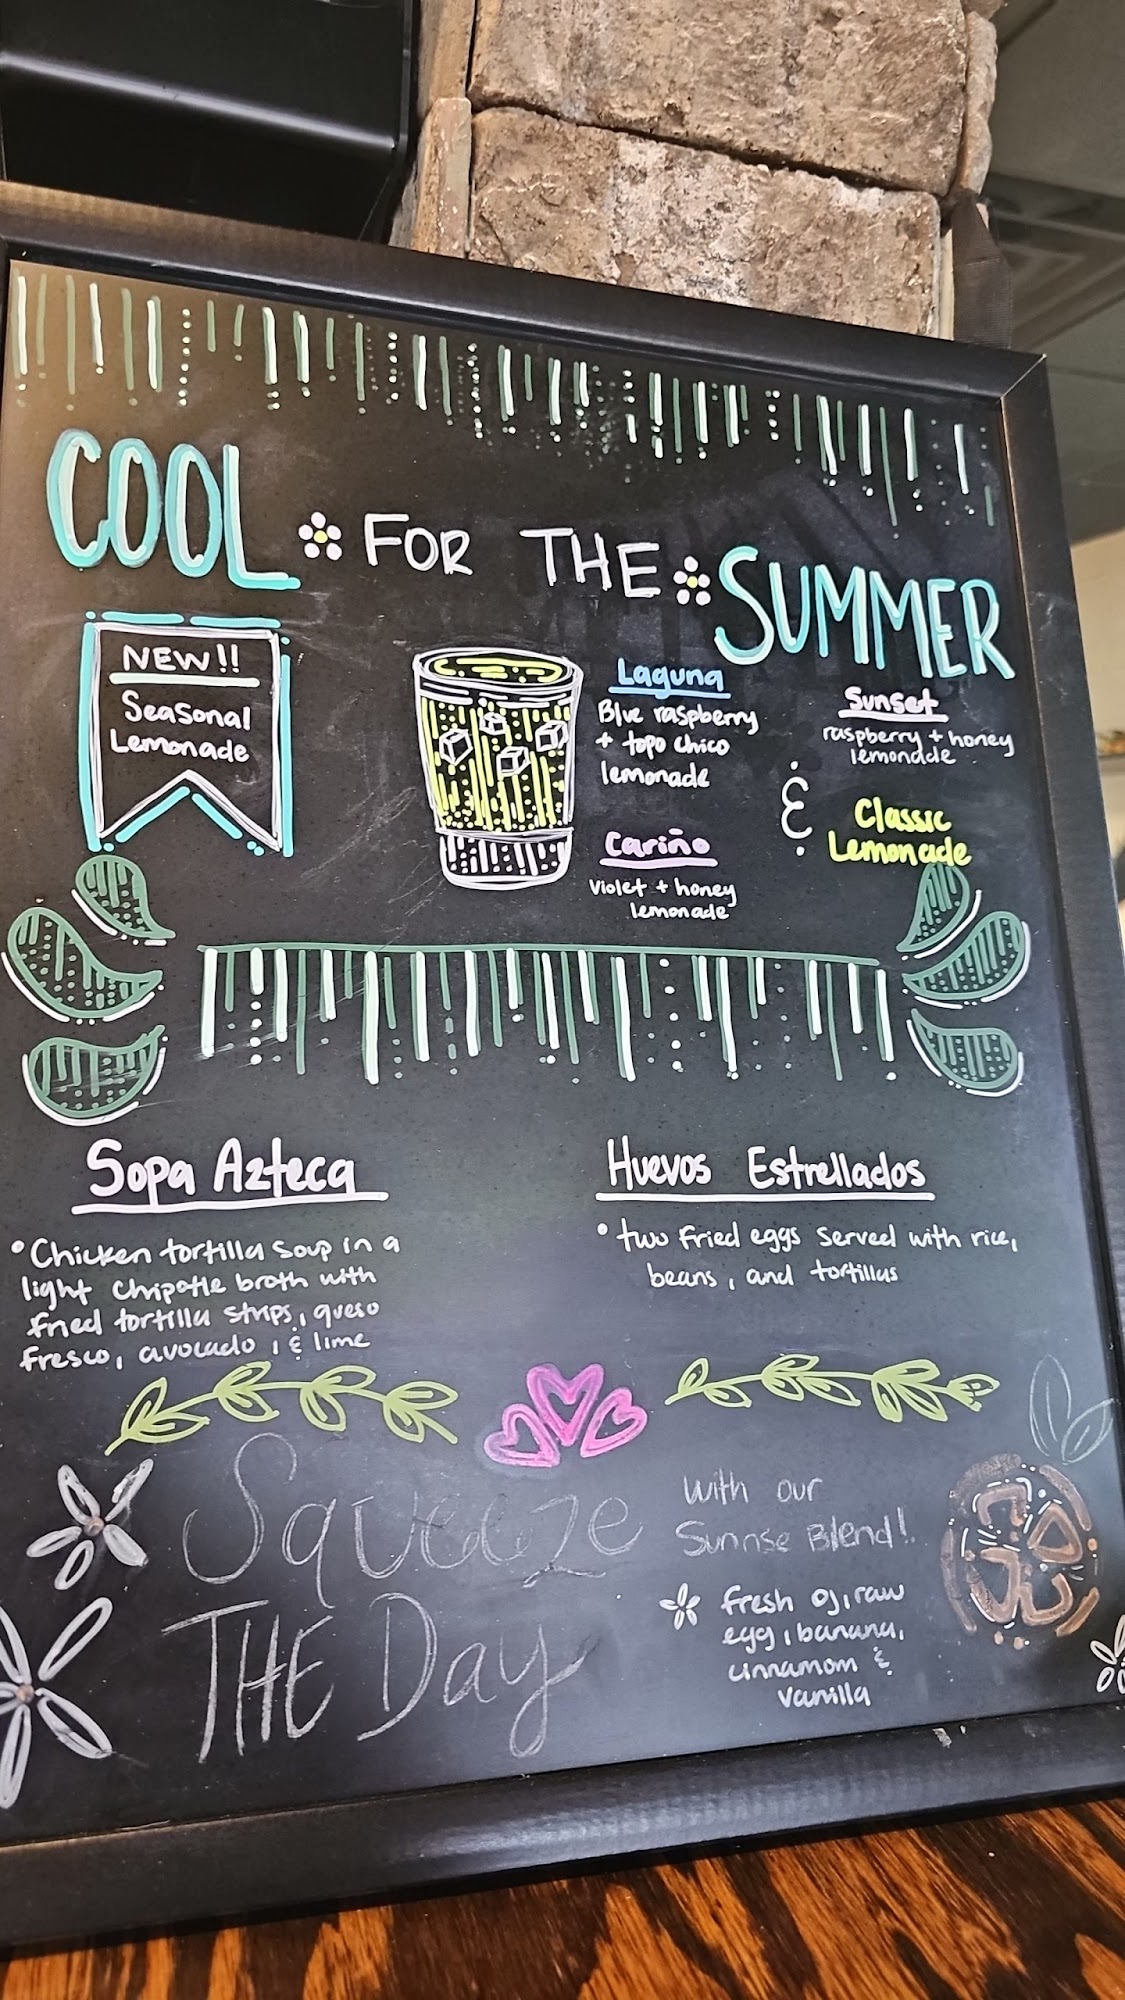 COOL FOR THE SUMMER
NEW!!
Seasonal
Lemonade
Laguna
Blue raspberry
+ topo chico
lemonade
Cariño
Violet + honey
lemonade
Sunset
raspberry + honey
lemonade
&
Classic
Lemonade
Sopa Azteca
• Chicken tortilla soup in a
light chipotle broth with
fried tortilla strips, queso
fresco, avocado, & lime
Huevos Estrellados
• two fried eggs served with rice,
beans, and tortillas
Squeeze
THE Day
with our
Sunrise Blend!
fresh oj, raw
egg, banana,
cinnamom &
vanilla